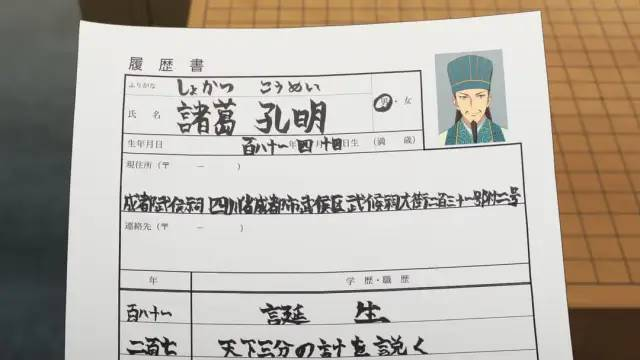 履歴書
ふりがな しょかつ こうめい
氏名 諸葛 孔明 男・女
生年月日 百八十一年 四月 十日生 (満 歳)
現住所 (〒 － )
成都武侯祠 四川省成都市武侯区武候祠大街二百三十一号附二号
連絡先 (〒 － )
年 学歴・職歴
百八十一 誕生
二百七 天下三分の計を説く